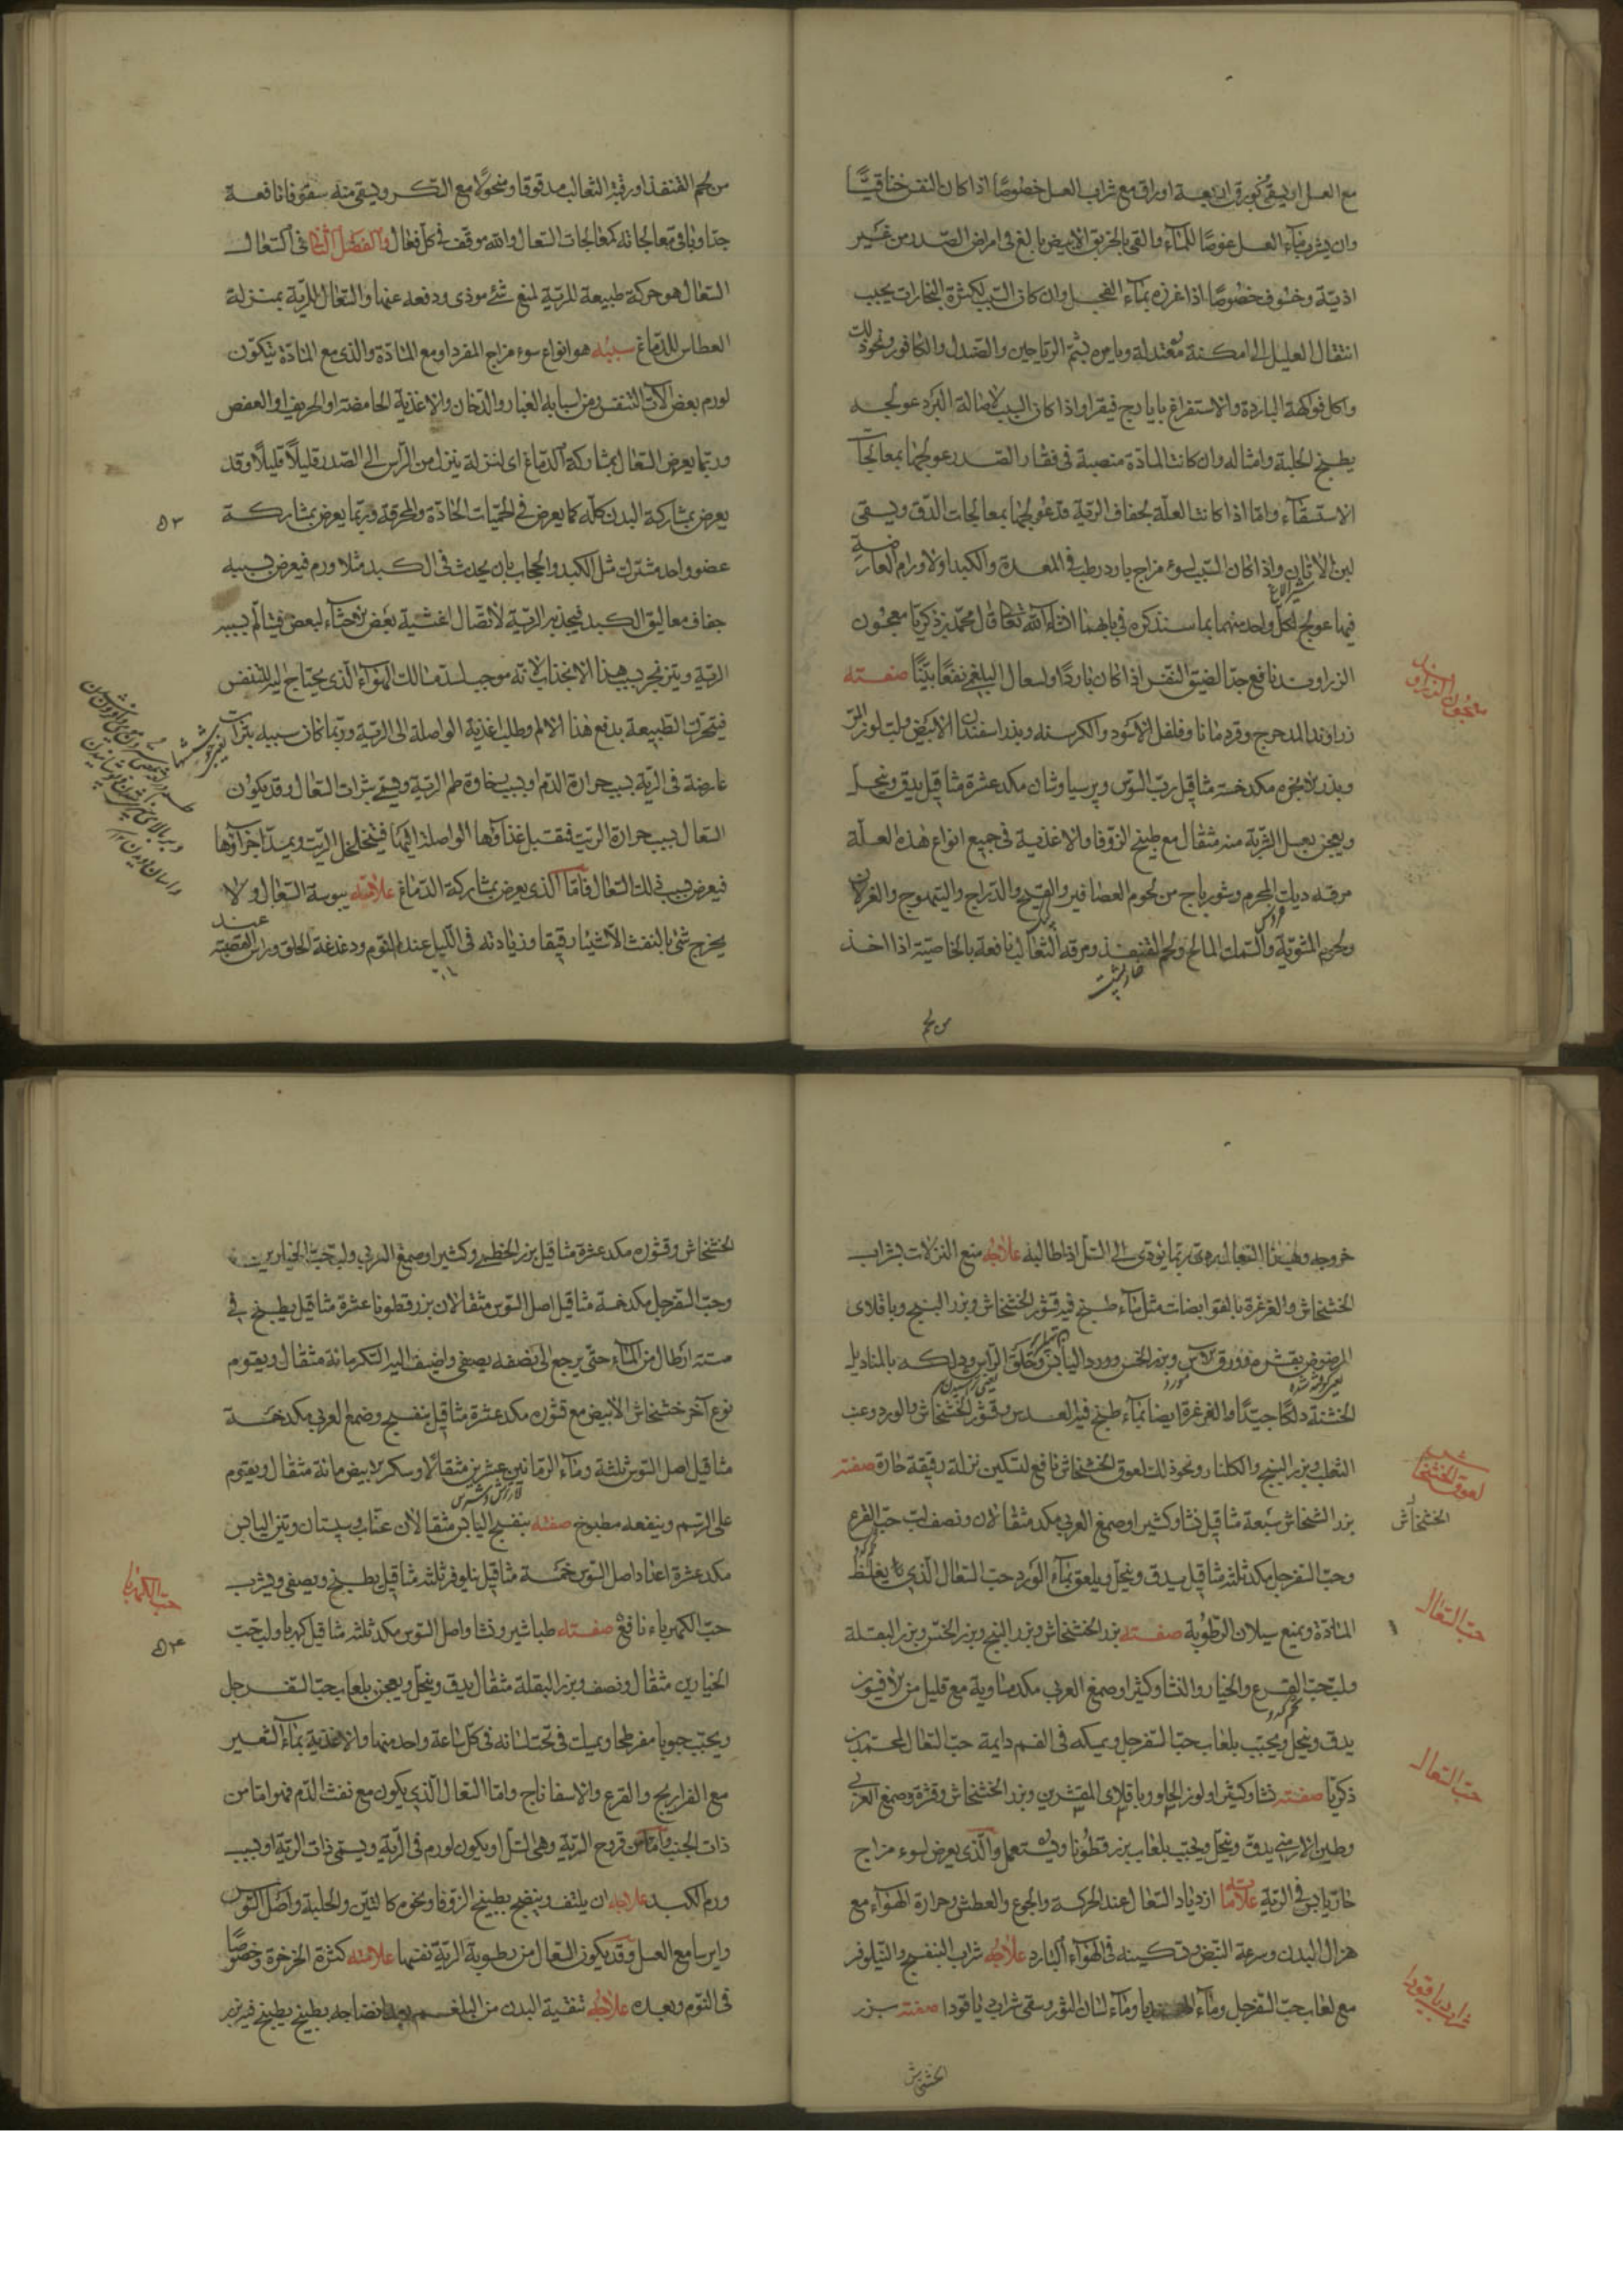 مع العسل او يسقى بورق اربعة اوراق مع شراب العسل خصوصًا اذا كان النفس خناقيًّا
وان يشرب ماء العسل عوضًا للماء والقى بالخربق الابيض بالغ فى امراض الصدر من غير
اذيّة وخوف خصوصًا اذا غرزه بماء الفجل وان كان السبب لكثرة البخارات يجب
انتقال العليل الى امكنة معتدلة ويامره بشم الرياحين والصندل والكافور ونحو ذلك
واكل فواكهة الباردة والاستفراغ بايارج فيقرا واذا كان السبب لاصالة البرد عولجـ
بطبخ الحلبة وامثاله وان كانت المادّة منصبة فى فضاء الصدر عولجها بمعالجات
الاستسقاء وامّا اذا كانت العلّة لجفاف الريّة قد عولجها بمعالجات الدق ويسقى
لبن الاتان واذا كان السبب لسوء مزاج بارد رطب فى المعدة والكبد اولاورام العارضة
شير الاغ
فيها عولج لكل واحد منهما بما سنذكره فى بابهما انشاء الله تعا قال محمّد بن ذكريّا معجون
الزراوند نافع جدّا لضيق النفس اذا كان باردًا ولسعال البلغمى نفعًا بيّنًا صفته
معجون الزراوند
زراوند المدحرج وقردمانا وفلفل الاسود والكرسنه وبذر اسفندان الابيض ولب لوز المرّ
وبذر الانجره مكد خمسة مثاقيل ربّ السوس وپرسياوشان مكد عشرة مثاقيل يدق وينخل
ويعجن بعسل الشربة منه مثقال مع طبيخ الزوفا والاغذية فى جميع انواع هذه العلّة
مرقه ديك الهرم وشورباج من لحوم العصافير والقبج والدراج والتيهوج والغزلان
ولحم المشويّة والسمك المالح ولحم القنفذ ومرقه الثعالب نافعة بالخاصيّته اذا اخذ
خارپشت
من لحم
من لحم القنفذ اورئية الثعالب مدقوقا ومنخولًا مع السكر ويسقى منه سفوفا نافعة
جدّا وباقى معالجاته كمعالجات السعال والله موفق فى كلّ فعال والفصل الثانى فى السعال
السعال هو حركة طبيعة للريّة لمنع شئ موذى ودفعه عنها والسعال للريّة بمنزلة
العطاس للدّماغ سببه هو انواع سوء مزاج المفرد او مع المادّة والذى مع المادّة يتكوّن
لورم بعض آلات التنفس ومن اسبابه الغبار والدّخان والاغذية الحامضة او الحريف او العفص
وربّما يعرض السعال بمشاركة الدّماغ اى لنزلة ينزل من الرّأس الى الصّدر قليلًا قليلًا وقد
يعرض بمشاركة البدن كلّه كما يعرض فى الحميّات الحادّة والمحرقة وربّما يعرض بمشاركة
٥٣
عضو واحد مشترك مثل الكبد والحجاب بان يحدث فى الكبد مثلا ورم فيعرض بسببه
جفاف معاليق الكبد فيجذب الريّة لاتّصال اغشية بعض الاحشاء لبعض فيتألّم بسببه
الريّة وينزجر بسبب هذا الانجذاب لانّه موجب لسدّ مسالك الهواء الّذى يحتاج اليه للتنفس
فيتحرّك الطّبيعة بدفع هذا الالم وطلب اغذية الواصلة الى الريّة وربّما كان سببه بثرات
عارضة فى الريّة بسبب حرارة الدّم او بسبب رخاوة لحم الريّة ويسمّى بثرات السعال وقد يكون
السعال بسبب حرارة الريّة فتقلب اغذآؤها الواصلة اليها فيتخلخل الريّة ويمدّ اجزآؤها
فيعرض بسبب ذلك السعال فامّا الذى يعرض بمشاركة الدّماغ علامته يبوسة السعال ولا
يخرج شئ بالنفث الّا شيئا رقيقا وزيادته فى اللّيل عند النّوم ودغدغة الحلق وراس القصبة عند
خروجه وهذا السعال ردى ربّما يؤدى الى السلّ اذا طال به علاجه منع النزلات بشراب
الخشخاش والغرغرة بالقوابضات مثل ماء طبخ فيه قشور الخشخاش وبزر البنج وباقلاى
المرضوض بقشره وورق الآس وبزر الخس وورد اليابس وحلق الرأس ودلكه بالمناديل
الخشنة دلكًا جيّدًا والغرغرة ايضا بماء طبخ فيه العدس وقشور الخشخاش والورد وعنب
الثعلب وبزر البنج والكلنار ونحو ذلك لعوق الخشخاش نافع لتسكين نزلة رقيقة حارة صفته
لعوق الخشخاش
بزر الخشخاش سبعة مثاقيل نشا وكثيرا وصمغ العربى مكد مثقالان ونصف لبّ حبّ القرع
الخشخاش
وحبّ السفرجل مكد ثلثه مثاقيل يدق وينخل ويلعق بماء الورد حبّ السعال الّذى يغلظ
حبّ السعال
المادّة ويمنع سيلان الرّطوبة صفته بزر الخشخاش وبزر البنج وبزر الخس وبزر البقلة
ولبّ حبّ القرع والخيار والنشا وكثيرا وصمغ العربى مكد متساوية مع قليل من الافيون
تخم كدو
يدق وينخل ويحبّب بلعاب حبّ السفرجل ويمسكه فى الفم دايمة حبّ السعال لمحمّد بن
حبّ السعال
ذكريّا صفته نشا وكثيرا ولوز الحلو وباقلاى المقشّرين وبزر الخشخاش وقشره وصمغ العربى
وطين الارمنى يدق وينخل ويحبّب بلعاب بزر قطونا ويستعمل والّذى يعرض لسوء مزاج
حارّ يابس فى الريّة علامته ازدياد السّعال عند الحركة والجوع والعطش وحرارة الهوآء مع
هزال البدن وسرعة النبض وتسكينه فى الهوآء البارد علاجه شراب البنفسج والنيلوفر
مع لعاب حبّ السفرجل وماء وماء لسان الثور وسقى شراب دياقودا صفته بزر
شراب دياقودا
الخشخاش
الخشخاش وقشوره مكد عشرة مثاقيل بزر الخطمى وكثيرا وصمغ العربى ولبّ حبّ الخيارين
وحبّ السفرجل مكد خمسة مثاقيل اصل السوس مثقالان بزر قطونا عشرة مثاقيل يطبخ فى
ستة ارطال من الماء حتّى يرجع الى نصفه يصفى واضيف اليه السكر مائة مثقال ويقوم
نوع آخر خشخاش الابيض مع قشوره مكد عشرة مثاقيل بنفسج وصمغ العربى مكد خمسة
مثاقيل اصل السوس ثلثة وماء الرمانين عشرين مثقالًا وسكر الابيض مائة مثقال ويقوم
على الرّسم وينفعه مطبوخ صفته بنفسج اليابس مثقالان عنّاب وسپستان وتين اليابس
مكد عشرة اعدادا اصل السوس خمسة مثاقيل نيلوفر ثلثه مثاقيل يطبخ ويصفى ويشرب
حبّ الكهرباء نافع صفته طباشير ونشا واصل السوس مكد ثلثه مثاقيل كهربا ولبّ حبّ
حبّ الكهربا
٥٤
الخيارين مثقال ونصف وبزر البقلة مثقال يدق وينخل ويعجن بلعاب حبّ السفرجل
ويحبّب حبوبا مفرطحا ويمسك فى تحت لسانه فى كلّ ساعة واحد منها والاغذية بماء الشعير
مع الفراريج والقرع والاسفاناج وامّا السعال الّذى يكون مع نفث الدّم فهو امّا من
ذات الجنب وامّا من قروح الريّة وهى السلّ او يكون لورم فى الريّة ويسمّى ذات الريّة او بسبب
ورم الكبد علاجه ان يلتفت وينضج بطبيخ الزوفا ونحوه كالتّين والحلبة واصل السّوس
وايرسا مع العسل وقد يكون السعال من رطوبة الريّة نفسها علامته كثرة الخرخرة وخصوصًا
فى النّوم وبعده علاجه تنقية البدن من البلغم بعد انضاجه بطبيخ يطبخ فيه بزر